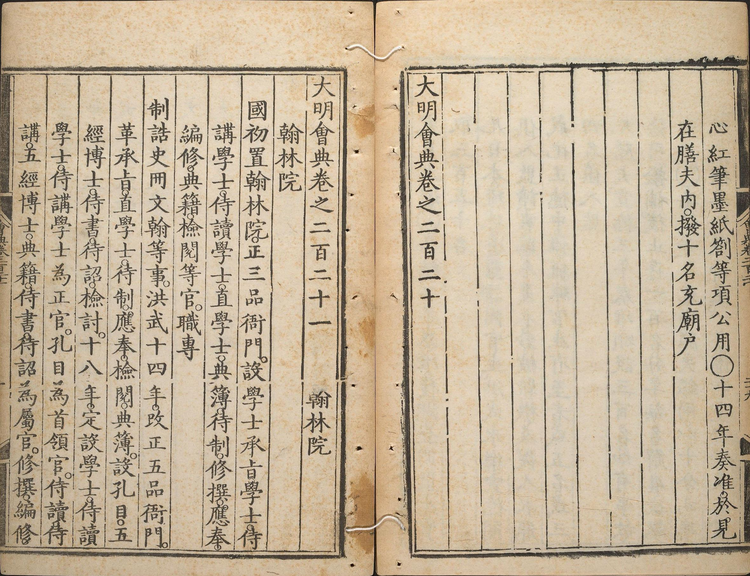 心紅筆墨紙劄等項公用〇十四年奏准。於見
在膳夫內。撥十名充廟戶
大明會典卷之二百二十
大明會典卷之二百二十一 翰林院
翰林院
國初置翰林院。正三品衙門。設學士承旨學士。侍
講學士。侍讀學士。直學士。典簿。待制。修撰。應奉。
編修。典籍。檢閱等官。職專
制誥史冊文翰等事。洪武十四年。改正五品衙門。
革承旨。直學士。待制。應奉。檢閱。典簿。設孔目。五
經博士。侍書。待詔。檢討。十八年。定設學士。侍讀
學士。侍講學士為正官。孔目為首領官。侍讀。侍
講。五經博士。典籍。侍書。待詔為屬官。修撰。編修